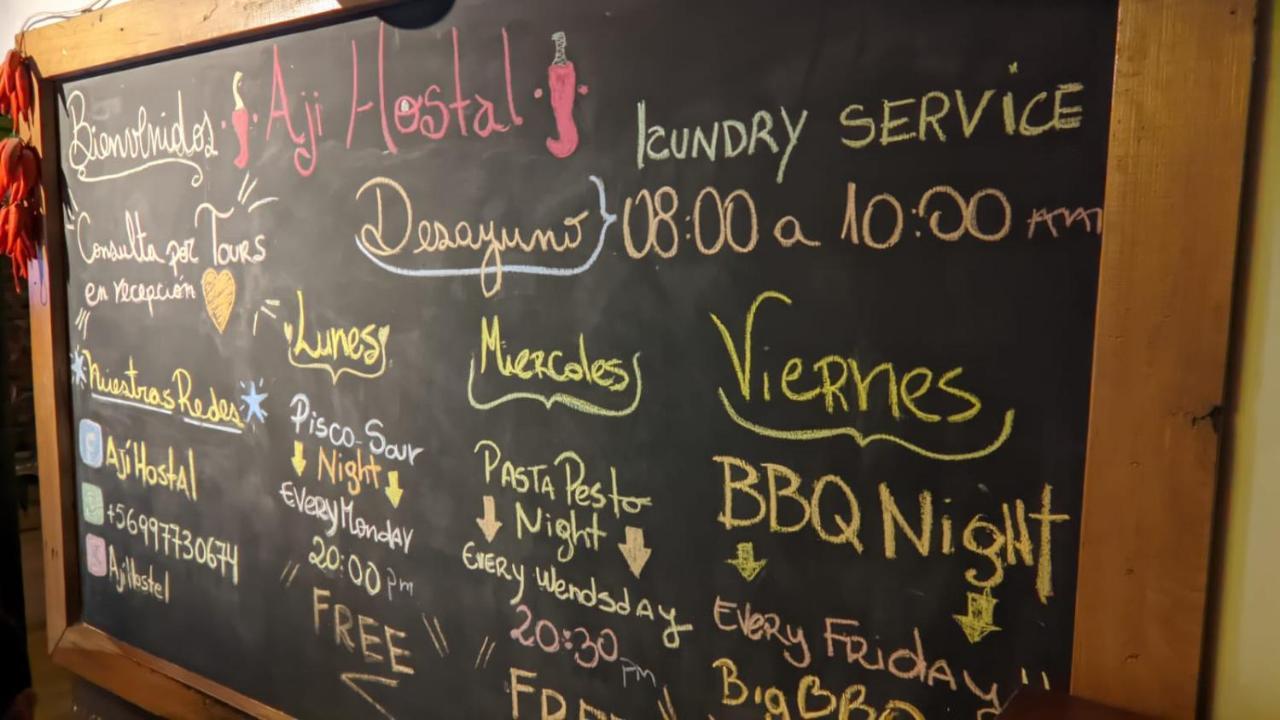 Bienvenidos Aji Hostal
LCUNDRY SERVICE
Desayuno 08:00 a 10:00 AM
Consulta por Tours
en recepción
Nuestras Redes
AjíHostAl
+56997730674
AjiHostel
Lunes
Pisco-Sour
Night
EVERY MONDAY
20:00 pm
FREE
Miercoles
PASTA Pesto
Night
EVERY WENDSDAY
20:30 pm
FREE
Viernes
BBQ Night
EVERY FRiDAY
Big BBQ